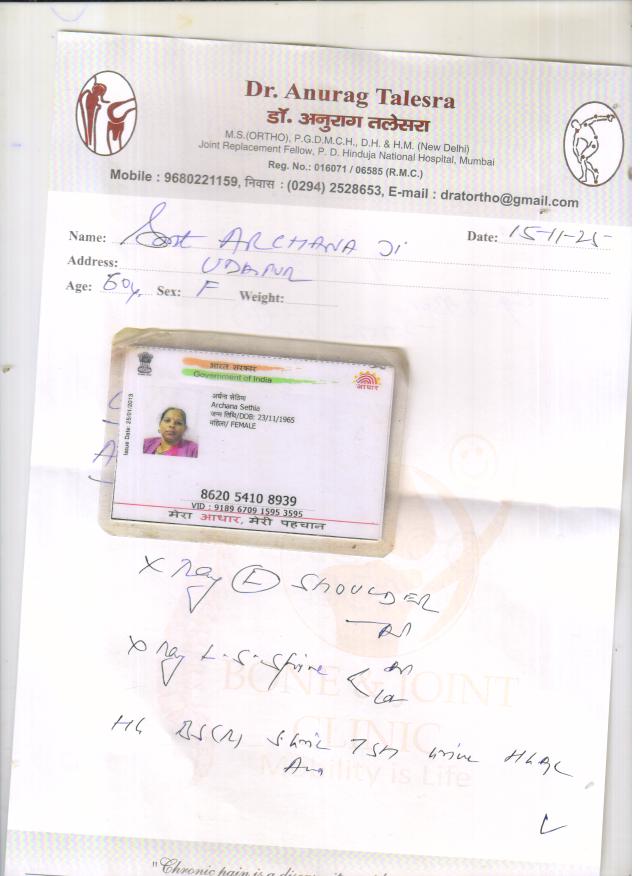 Dr. Anurag Talesra
डॉ. अनुराग तलेसरा
M.S.(ORTHO), P.G.D.M.C.H., D.H. & H.M. (New Delhi)
Joint Replacement Fellow, P. D. Hinduja National Hospital, Mumbai
Reg. No.: 016071 / 06585 (R.M.C.)
Mobile : 9680221159, निवास : (0294) 2528653, E-mail : dratortho@gmail.com
Name: ARCHANA Ji Date: 15-11-25
Address: UDAIPUR
Age: 60y. Sex: F Weight:
भारत सरकार
Government of India
आधार
Issue Date: 25/01/2013
अर्चना सेठिया
Archana Sethia
जन्म तिथि/DOB: 23/11/1965
महिला/ FEMALE
8620 5410 8939
VID : 9189 6709 1595 3595
मेरा आधार, मेरी पहचान
X Ray SHOULDER
AP
X Ray L-S-Spine AP
Lat
BONE & JOINT
CLINIC
Mobility is Life
BS(R) TSH Urine
"Chronic pain is a